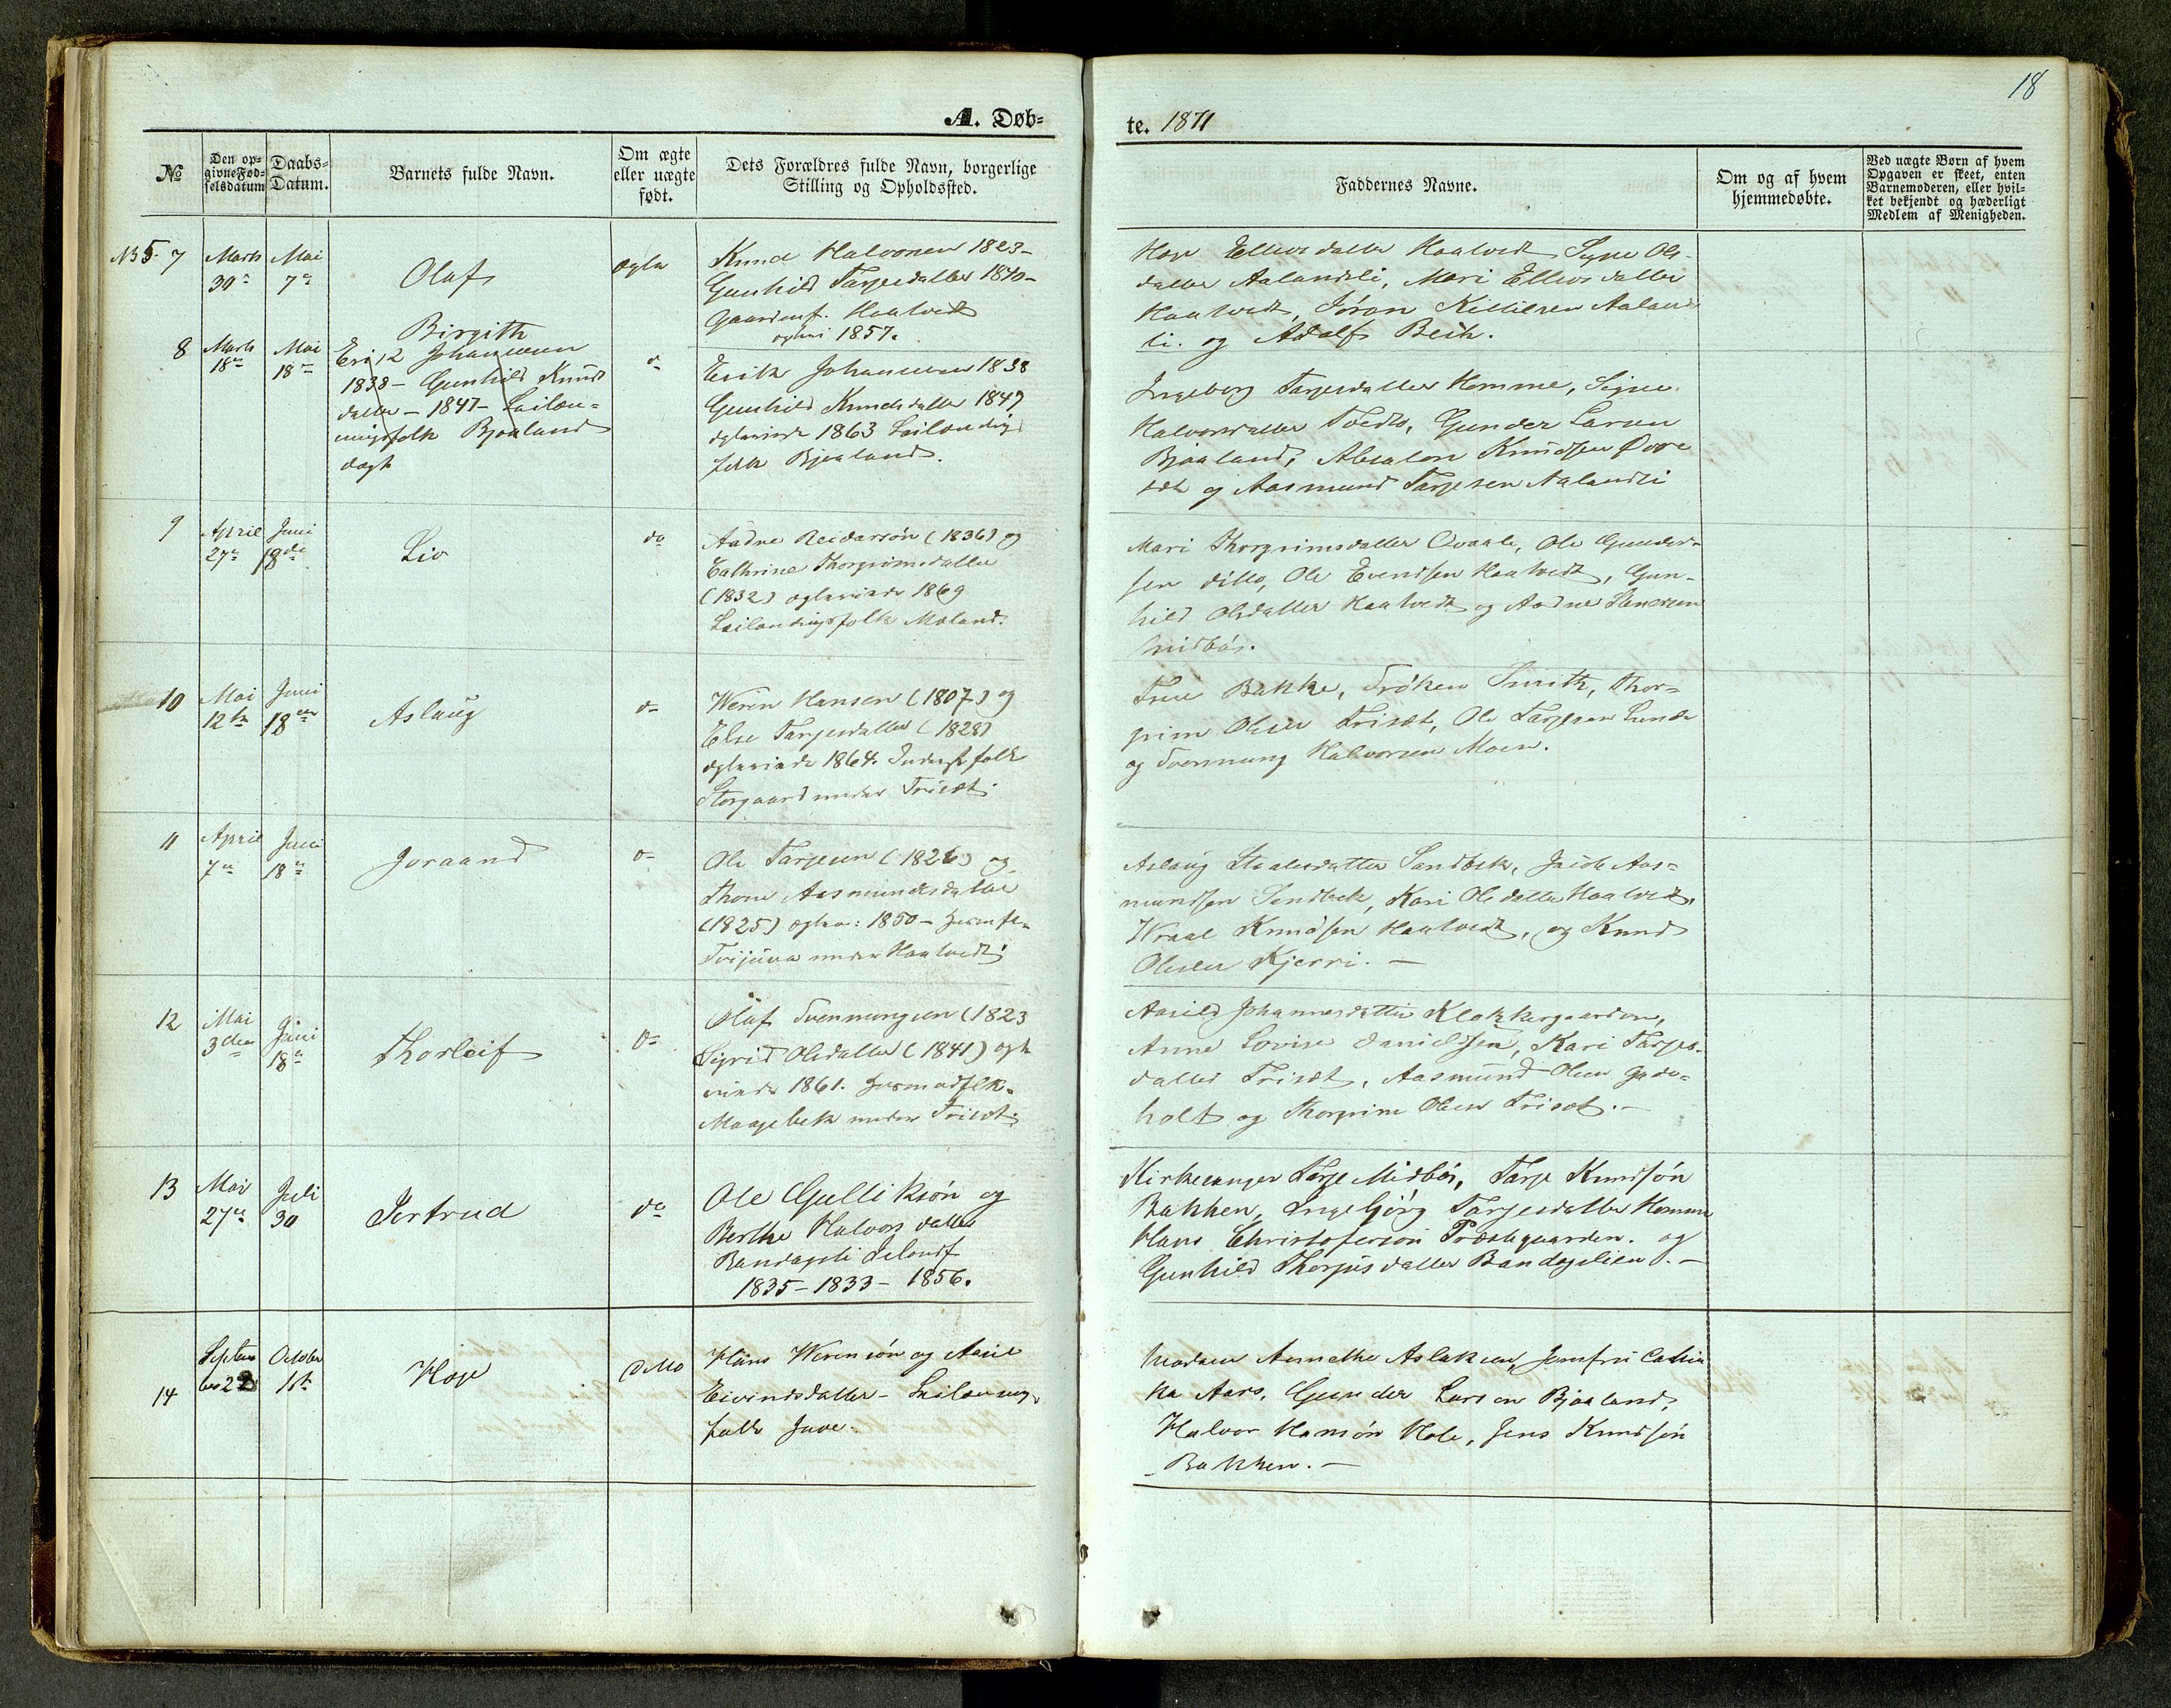 18
A. Døb=
te. 1871
No
Den op=
givne Fød=
selsdatum
Daabs=
Datum.
Barnets fulde Navn.
Om ægte
eller uægte
født.
Dets Forældres fulde Navn, borgerlige
Stilling og Opholdssted.
Faddernes Navne.
Om og af hvem
hjemmedøbte.
Ved uægte Børn af hvem
Opgaven er skeet, enten
Barnemoderen, eller hvil=
ket bekjendt og hæderligt
Medlem af Menigheden.
7
Marts
30
Mai
7
Olaf
ægte
Knud Halvorsen 1823-
Gunhild Targesdatter 1840-
Haatvedt
1857.
Ellevsdatter Haatvedt Signe Ols-
datter Aalandsli, Mari Ellevsdatter
Haatvedt, Jøran Aaland
li. og Adolf Beck.
8
Marts
18
Mai
18
Birgith
Erik Johannesen
1838 - Gunhild Knuds
datter - 1847 - Leilæn=
ningsfolk Bjaaland
do
Erik Johannesen 1838
Gunhild Knudsdatter 1847
1863
folk Bjaaland.
Ingeborg Targesdatter Homme, Signe
Halvorsdatter Gunder Larsen
Bjaaland, Absalon Knudsen
og Aasmund Targesen Aalandsli
9
April
27
Juni
18de
Liv
do
Aadne Reidarsøn (1836) og
Cathrine Thorgrimsdatter
(1832) 1869
Leilændingsfolk Moland.
Mari Thorgrimsdatter Qvaale, Ole Gunder-
sen ditto, Ole Evendsen Haatvedt, Gun-
hild Olsdatter Haatvedt og Aadne
Midbøe.
10
Mai
12te
Juni
18
Aslaug
do
Weren Hansen (1807) og
Else Targesdatter (1828)
1864. Inderstfolk
Storgaard under Trisæt.
Frue Bakke, Frøken Smith, Thor-
grim Olsen Trisæt, Ole Targesen Lunde
og Tvenning Halvorsen Moen.
11
April
7
Juni
18
Joraand
do
Ole Targesen (1826) og
Thone Aasmundsdatter
(1825) 1850 -
under Haatvedt
Aslaug Sandbek, Jacob Aas=
mundsen Sandbek, Kari Olsdatter Haatvedt,
Wraal Knudsen Haatvedt, og Knud
Olsen Kjerri. -
12
Mai
3
Juni
18
Thorleif
do
Olaf Tvenningsen (1823
Sigrid Olsdatter (1841)
1861.
Maagebek under Trisæt.
Aasild Johannesdatter Klokkergaarden,
Anne Lovise Danielsen, Kari Targes-
datter Trisæt, Aasmund Olsen
holt og Thorgrim Olsen Trisæt. -
13
Mai
27
Juli
30
Gertrud
do
Ole Gulliksøn og
Berthe Halvorsdatter
Bandagsli
1835 - 1833 - 1856.
Kirkesanger Targe Midbøe, Targe Knudsøn
Bakken, Ingebjørg Targesdatter Homme
Hans Christofersøn Præstegaarden. og
Gunhild Thorjusdatter Bandagslien. -
14
Septem
ber 28
October
1ste
Høge
ditto
Hans Werensøn og Aasie
Eivindsdatter - Leilænings
folk Juve.
Madam Annethe Aslaksen, Jomfru Cathin
ka Aars, Gunder Larsen Bjaaland,
Halvor Hansøn Hole, Jens Knudsøn
Bakken. -